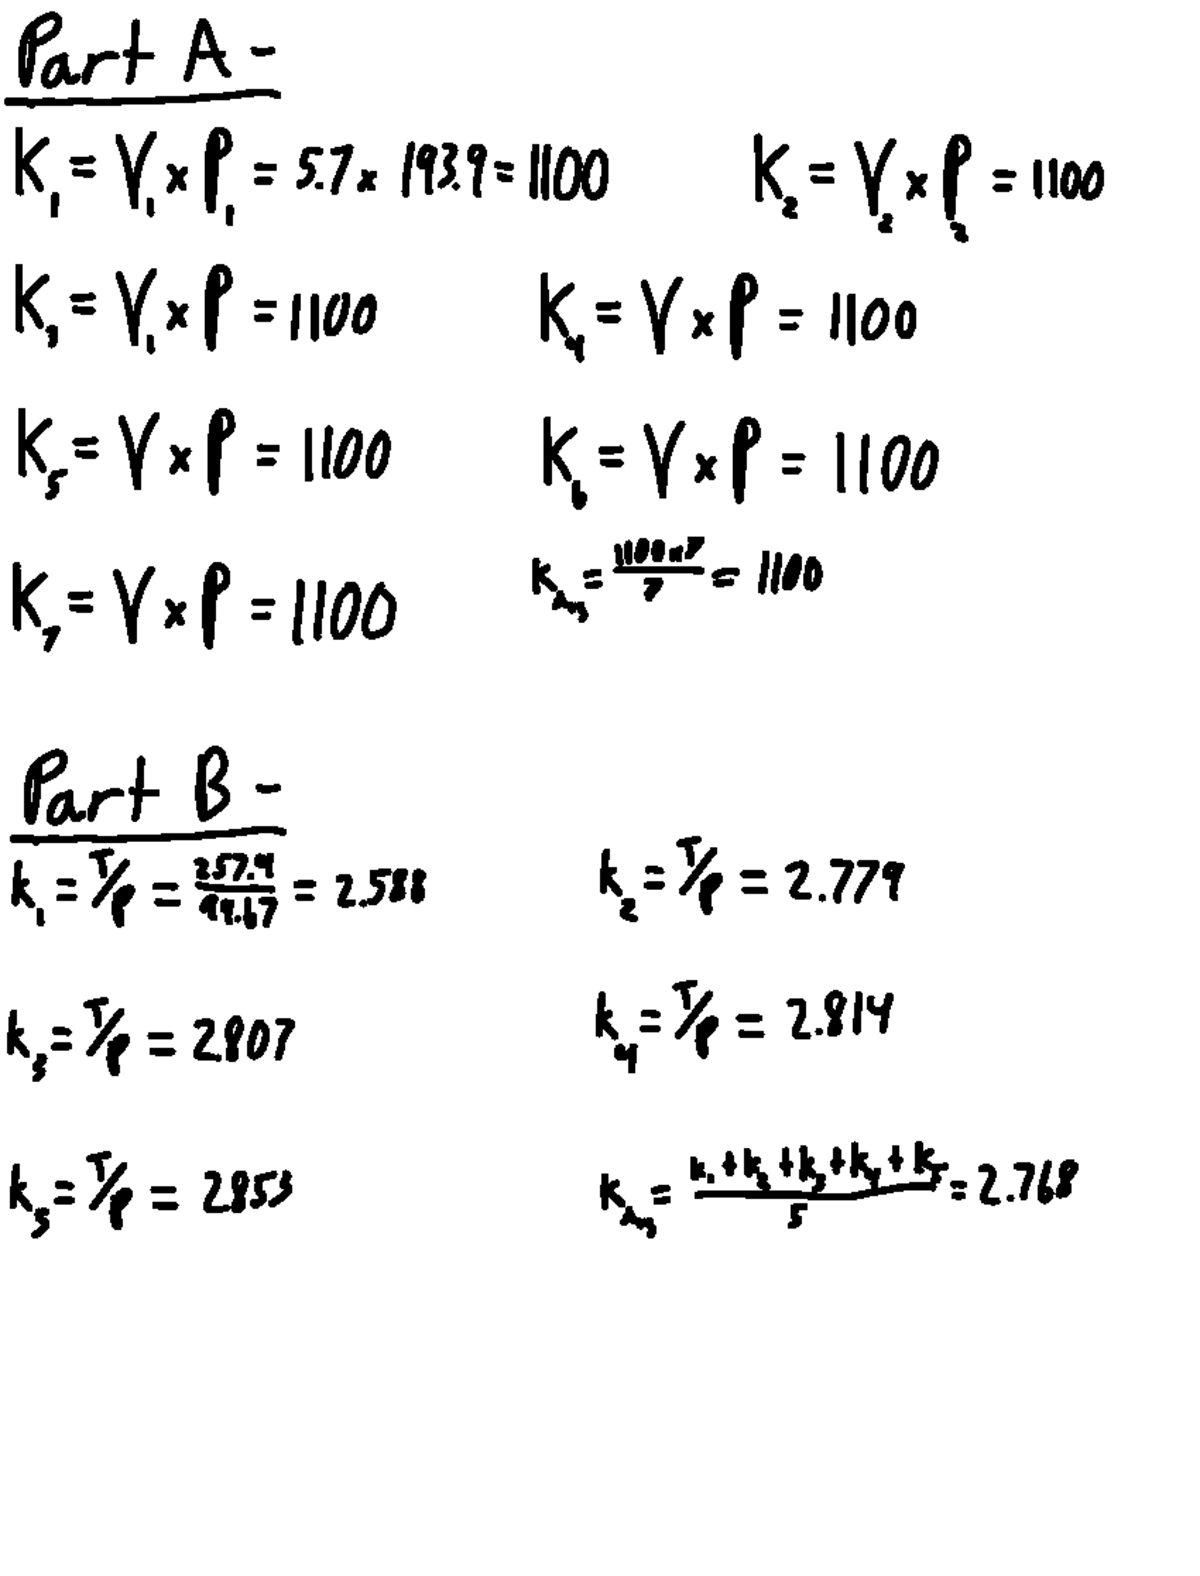 Part A -
K₁ = V₁ x P₁ = 5.7 x 193.9 = 1100
K₂ = V₂ x P₂ = 1100
K₃ = V₁ x P = 1100
K₄ = V x P = 1100
K₅ = V x P = 1100
K₆ = V x P = 1100
K₇ = V x P = 1100
K_Avg = 1100 x 7 / 7 = 1100
Part B -
k₁ = T/P = 257.4 / 99.67 = 2.588
k₂ = T/P = 2.779
k₃ = T/P = 2.807
k₄ = T/P = 2.814
k₅ = T/P = 2.853
K_Avg = k₁ + k₂ + k₃ + k₄ + k₅ / 5 = 2.768